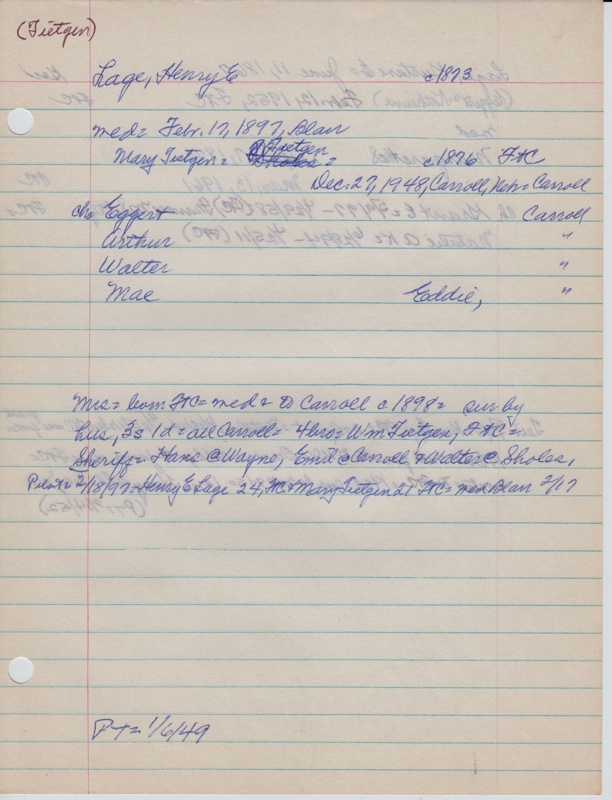 (Tietgen)
Lage, Henry E c1873
med = Feb. 17, 1897, Blair
J Tietgen
Mary Tietgen = Sholes = c1876 FtC
Dec. 27, 1948, Carroll, Neb = Carroll
ch. Eggert Carroll
Arthur "
Walter "
Mae Eddie, "
Mrs = born FtC = med & to Carroll c 1898 = sur by
hus, 3s 1d = all Carroll = 4 bro = Wm Tietgen, FtC =
Sheriff = Hans @ Wayne, Emil @ Carroll & Walter @ Sholes,
Pilot = 2/18/97 = Henry E Lage 24, & Mary Tietgen 21 FtC = med Blair 2/17
PT = 1/6/49